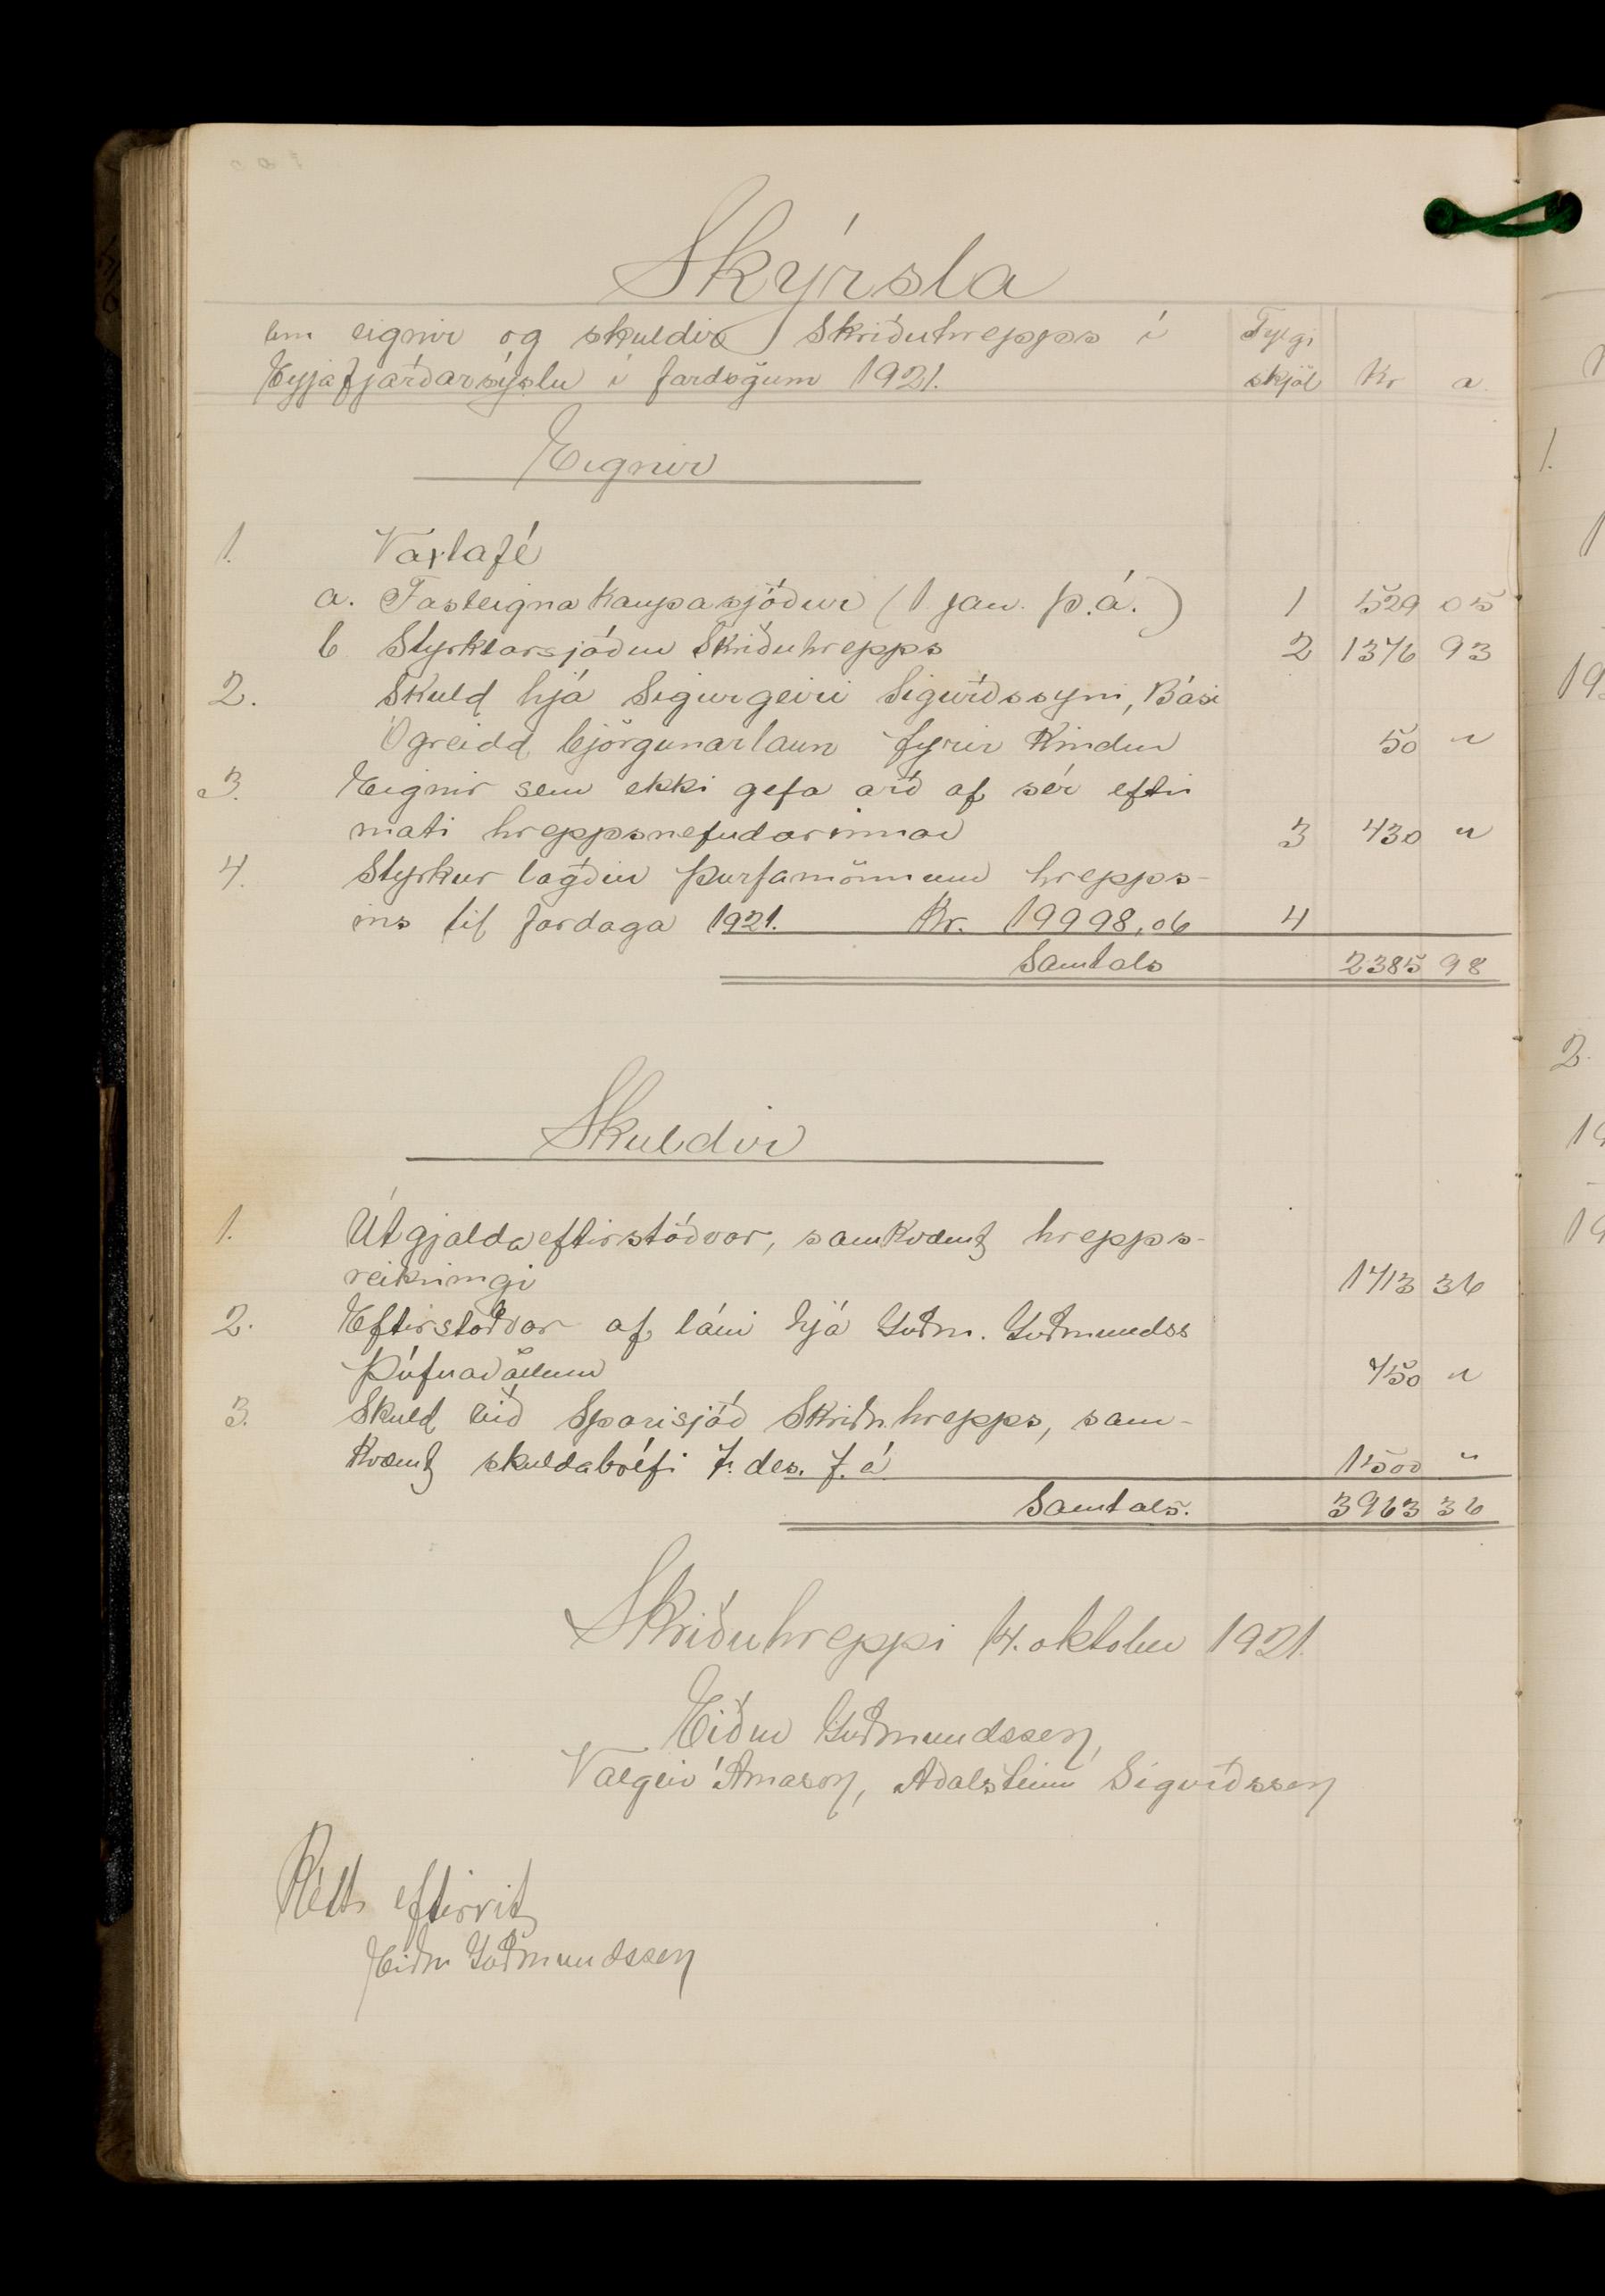 Skýrsla
um eignir og skuldir Skriðuhrepps í Fylgi
Eyjafjarðarsýslu í fardögum 1921. skjöl Kr a.
Eignir
1. Vaxtafé
a. Fasteignakaupasjóður (1 jan. þ.á.) 1 529 05
b Styrktarsjóður Skriðuhrepps 2 1376 93
2. Skuld hjá Sigurgeiri Sigurðssyni, Bási
Ógreidd björgunarlaun fyrir Kindur 50 "
3. Eignir sem ekki gefa arð af sér eftir
mati hreppsnefndarinnar 3 430 "
4. Styrkur lagður þurfamönnum hrepps-
ins til fardaga 1921. Kr. 19998,06 4
Samtals 2385 98
Skuldir
1. Útgjaldaeftirstöðvar, samkvæmt hrepps-
reikningi 1713 36
2. Eftirstöðvar af láni hjá Guðm. Guðmundss
Þúfnavöllum 750 "
3. Skuld við Sparisjóð Skriðuhrepps, sam-
kvæmt skuldabréfi 7. des. f. á. 1500 "
Samtals. 3963 36
Skriðuhreppi 14. oktober 1921.
Eiður Guðmundsson,
Valgeir Árnason, Aðalsteinn Sigurðsson
Rétt eftirrit
Eiður Guðmundsson
1.
1
19
2.
19
19